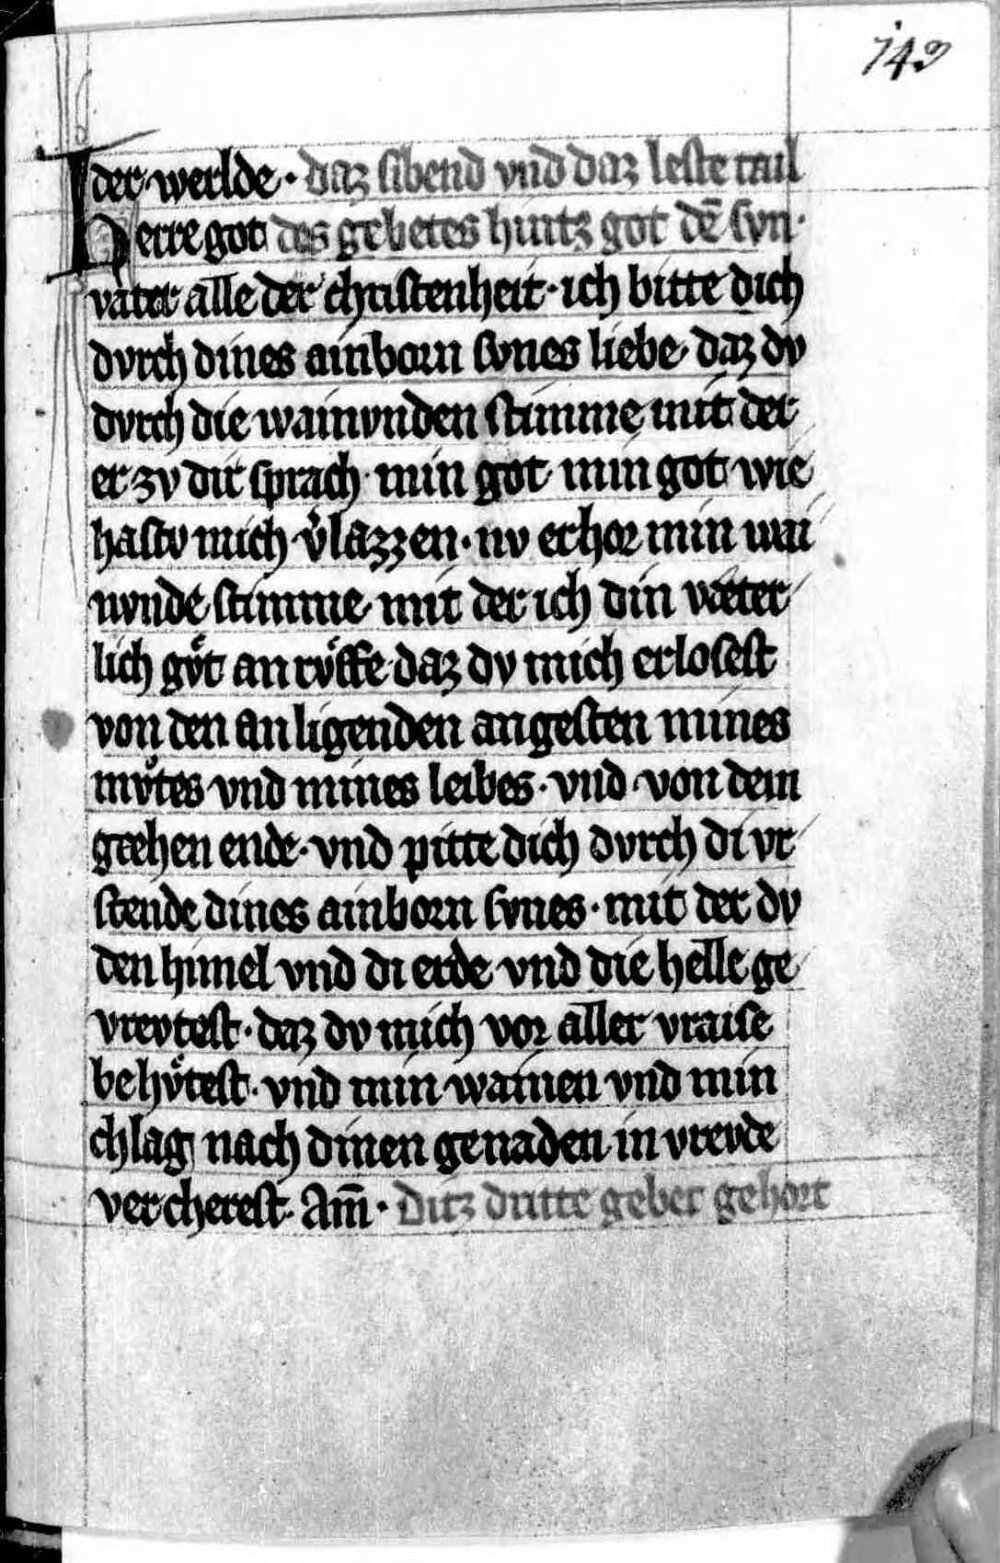 143
der werlde · daz sibend vnd daz leste tail
Herre got des gebetes hintz got dē svn ·
vater alle der christenheit · ich bitte dich
dvrch dines ainborn svnes liebe daz dv
dvrch die wainvnden stimme mit der
er zv dir sprach · min got min got wie
hastv mich v̓lazzen · nv erhor min wai
nvnde stimme mit der ich din væter
lich gv̊t an rv̊ffe daz dv mich erlosest
von den an ligenden angesten mines
mv̊tes vnd mines leibes · vnd von dem
gæhen ende · vnd pitte dich dvrch di vr
stende dines ainborn svnes · mit der dv
den himel vnd di erde vnd die helle ge
vrevtest · daz dv mich vor aller vraise
behv̊test · vnd min wainen vnd min
chlag nach dinen genaden in vrevde
vercherest · Am̄ · Ditz dritte gebet gehort